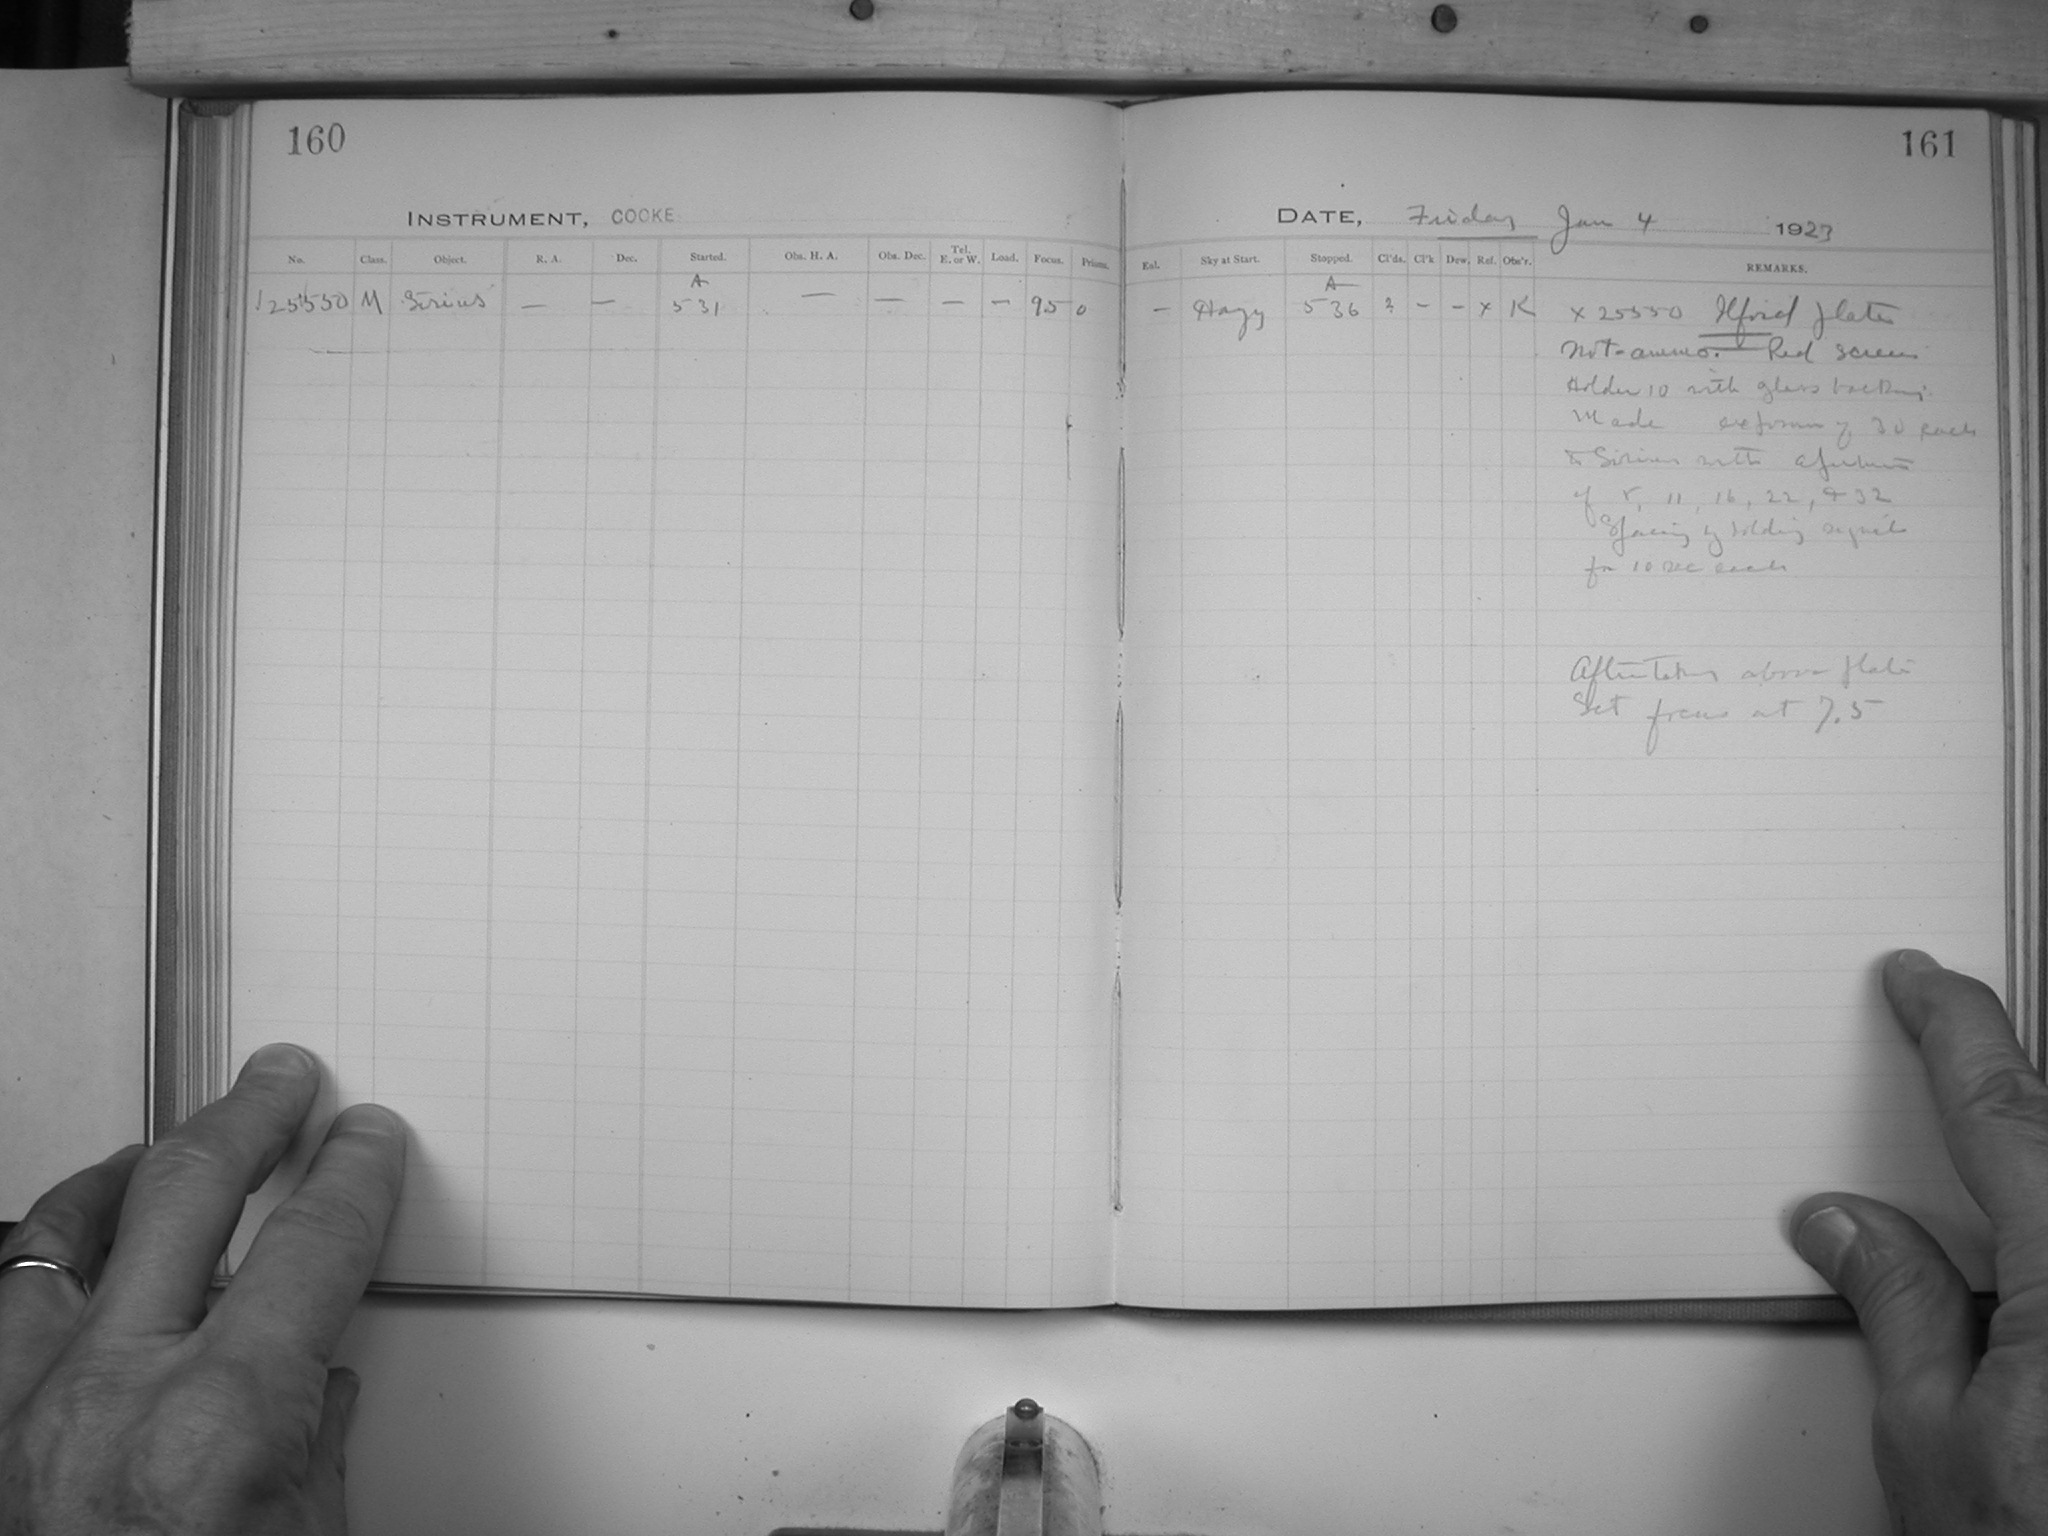 160
161
INSTRUMENT, COOKE
DATE, Friday Jan 4 1923
No. Class. Object. R. A. Dec. Started. Obs. H. A. Obs. Dec. Tel. E. or W. Load. Focus. Prisms.
Eal. Sky at Start. Stopped. Cl'ds. Cl'k Dew. Ref. Obs'r. REMARKS.
A
A
25550 M Sirius — — 5 31 — — — — 9.5 0
— Hazy 5 36 ? – – x K x 25550 Ilford plate
Not ammo. Red screen
Holder 10 with glass backing
Made exposures of 30 each
Sirius with apertures
of 8, 11, 16, 22, & 32
Spacing by holding
for 10 sec each
After taking above plate
Set focus at 7.5